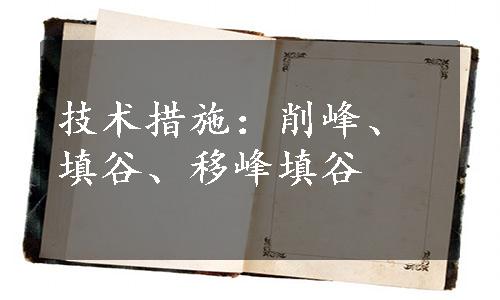 技术措施：削峰、
填谷、移峰填谷